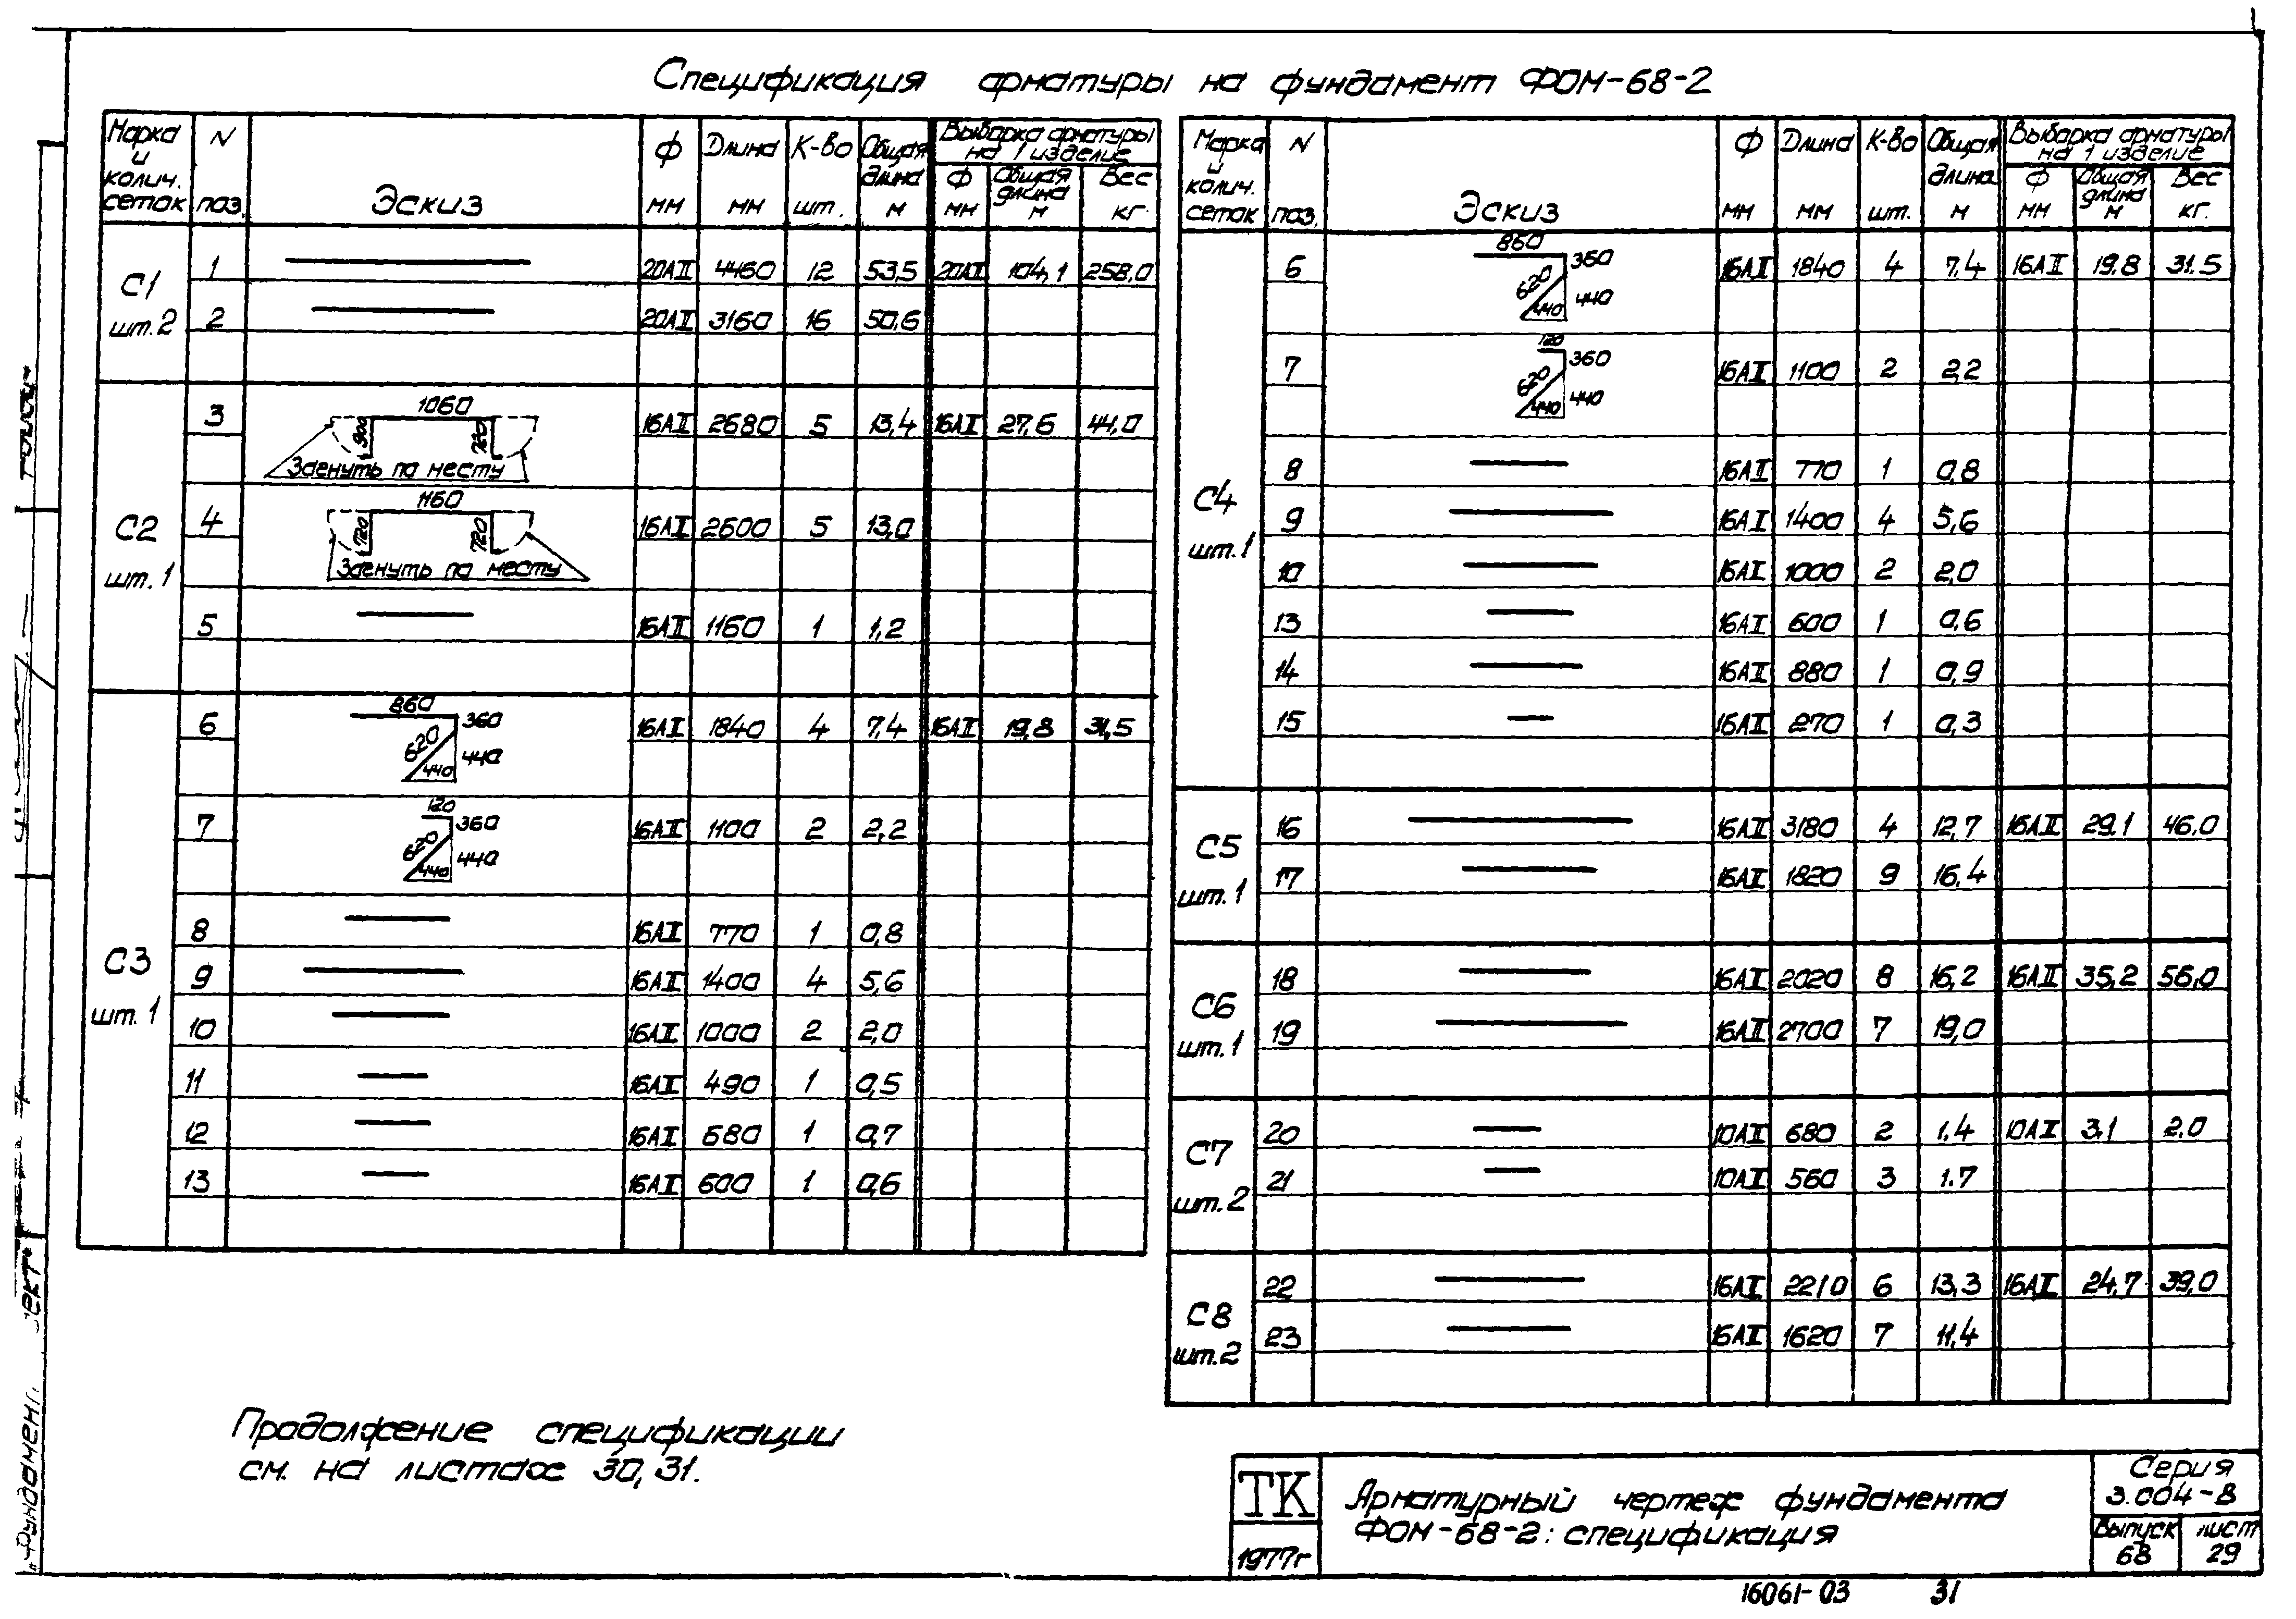 Спецификация арматуры на фундамент ФОМ-68-2
Марка и колич. сеток N поз. Эскиз Ф мм Длина мм К-во шт. Общая длина м Выборка арматуры на 1 изделие Ф мм Общая длина м Вес кг.
С1 шт.2
1 20АII 4460 12 53,5 20АII 104,1 258,0
2 20АII 3160 16 50,6
С2 шт.1
3 1060 900 720 Загнуть по месту 16АII 2680 5 13,4 16АII 27,6 44,0
4 1160 720 720 Загнуть по месту 16АII 2600 5 13,0
5 16АII 1160 1 1,2
С3 шт.1
6 860 360 620 440 440 16АII 1840 4 7,4 16АII 19,8 31,5
7 120 360 620 440 440 16АII 1100 2 2,2
8 16АII 770 1 0,8
9 16АII 1400 4 5,6
10 16АII 1000 2 2,0
11 16АII 490 1 0,5
12 16АII 680 1 0,7
13 16АII 600 1 0,6
Марка и колич. сеток N поз. Эскиз Ф мм Длина мм К-во шт. Общая длина м Выборка арматуры на 1 изделие Ф мм Общая длина м Вес кг.
С4 шт.1
6 860 360 620 440 440 16АII 1840 4 7,4 16АII 19,8 31.5
7 120 360 620 440 440 16АII 1100 2 2,2
8 16АII 770 1 0,8
9 16АII 1400 4 5,6
10 16АII 1000 2 2,0
13 16АII 600 1 0,6
14 16АII 880 1 0,9
15 16АII 270 1 0,3
С5 шт.1
16 16АII 3180 4 12,7 16АII 29.1 46,0
17 16АII 1820 9 16,4
С6 шт.1
18 16АII 2020 8 16,2 16АII 35,2 56,0
19 16АII 2700 7 19,0
С7 шт.2
20 10АII 680 2 1.4 10АII 3.1 2.0
21 10АII 560 3 1.7
С8 шт.2
22 16АII 2210 6 13,3 16АII 24,7 39,0
23 16АII 1620 7 11,4
Продолжение спецификации
см. на листах 30, 31.
ТК
1977г
Арматурный чертеж фундамента
ФОМ-68-2: спецификация
Серия
3.004-8
Выпуск 68
лист 29
16061-03 31